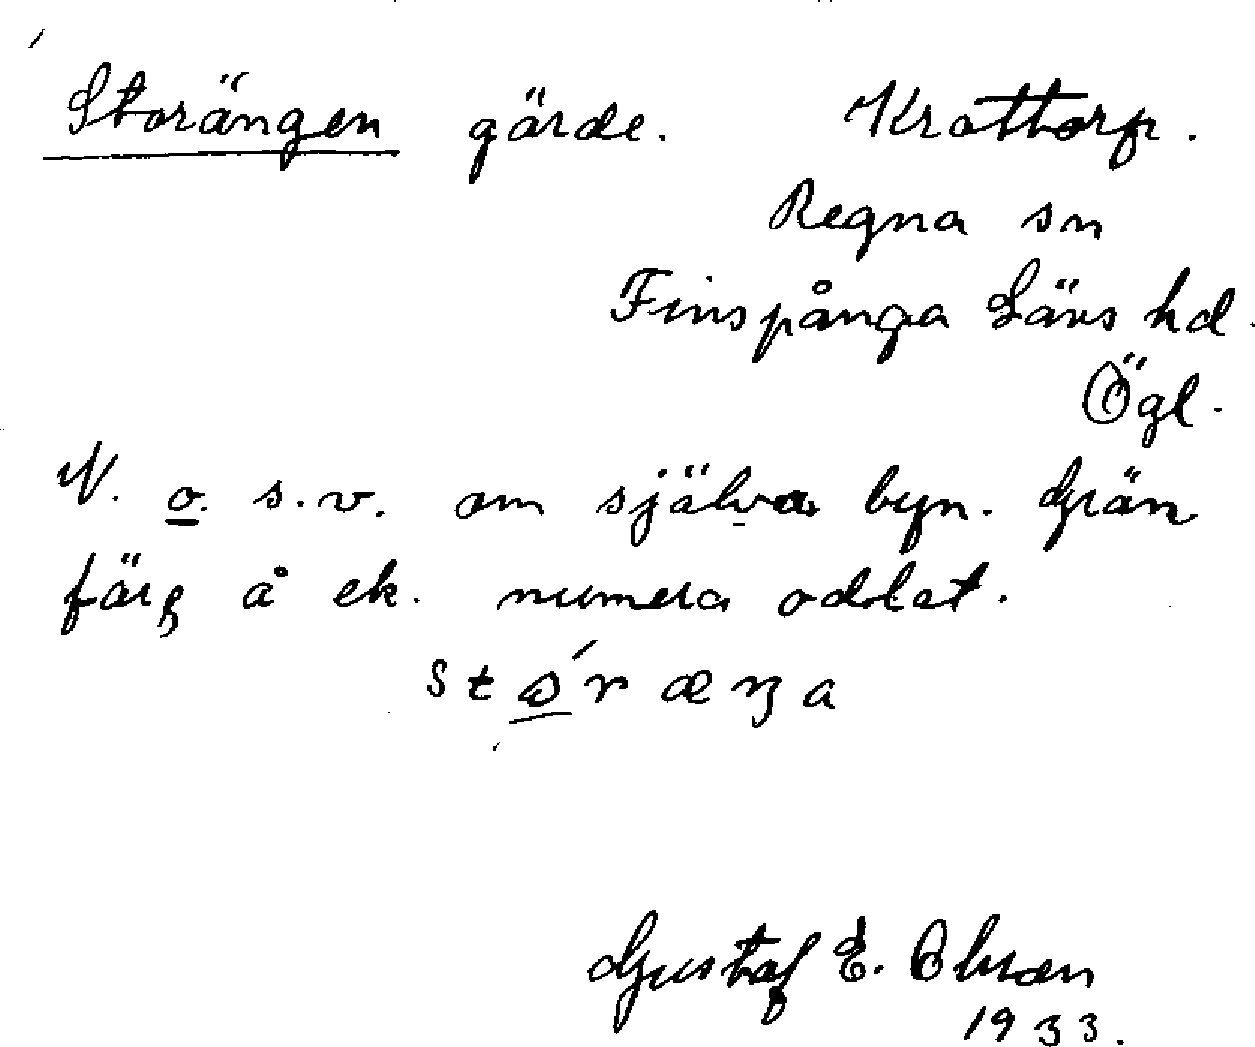 Storängen gärde. Krattorp.
Regna sn
Finspånga Läns hd.
Ögl.
N. o. s.v. om själva byn. Grän
färg å ek. numera odlat.
Gustaf E. Olsson
1933.